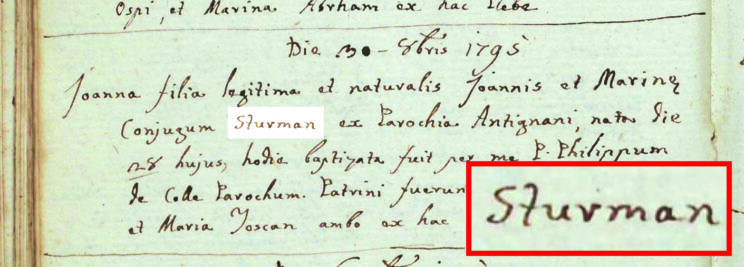 Ospi, et Marina Abrham ex hac Plebe
Die 30 - 8bris 1795
Joanna filia legitima et naturalis Joannis et Marinę
Conjugum Sturman ex Parochia Antignani, nata die
28 hujus, hodie baptizata fuit per me P. Philippum
de Colle Parochum. Patrini fuerun
et Maria Toscan ambo ex hac
Sturman